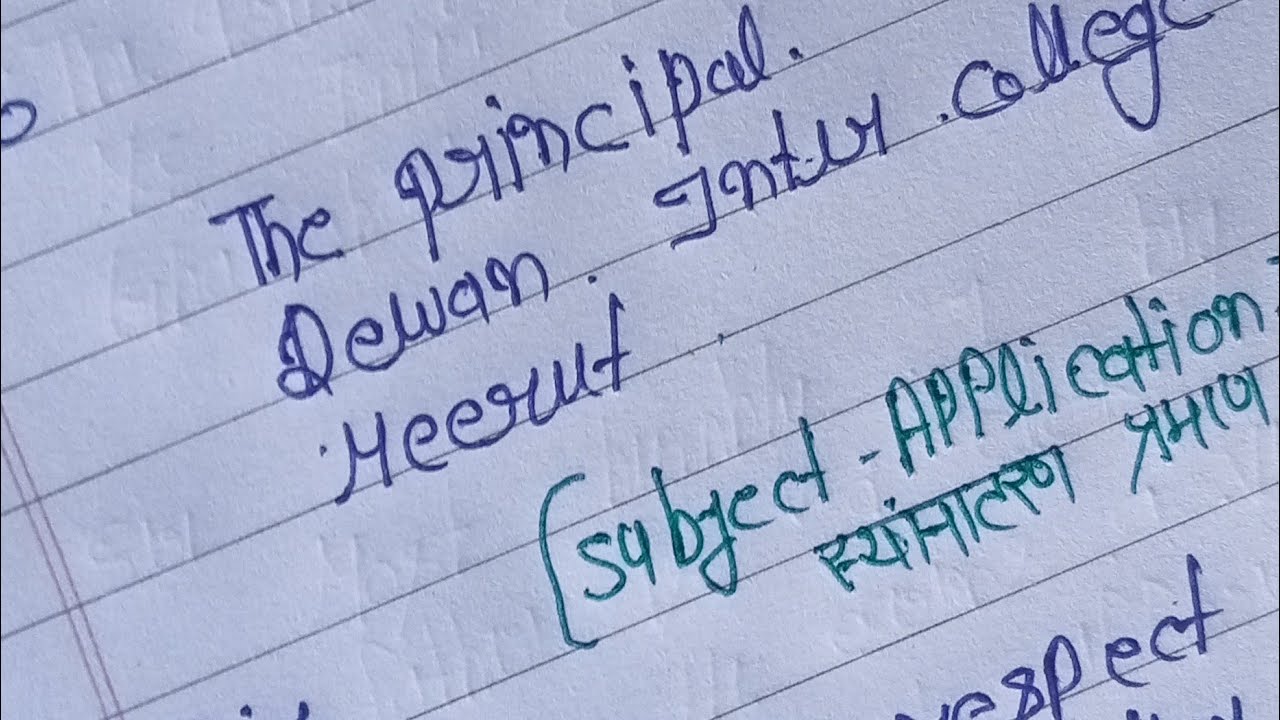 The principal.
Dewan. Inter. College
Meerut.
[Subject - Application
स्थांनातरण प्रमाण
respect